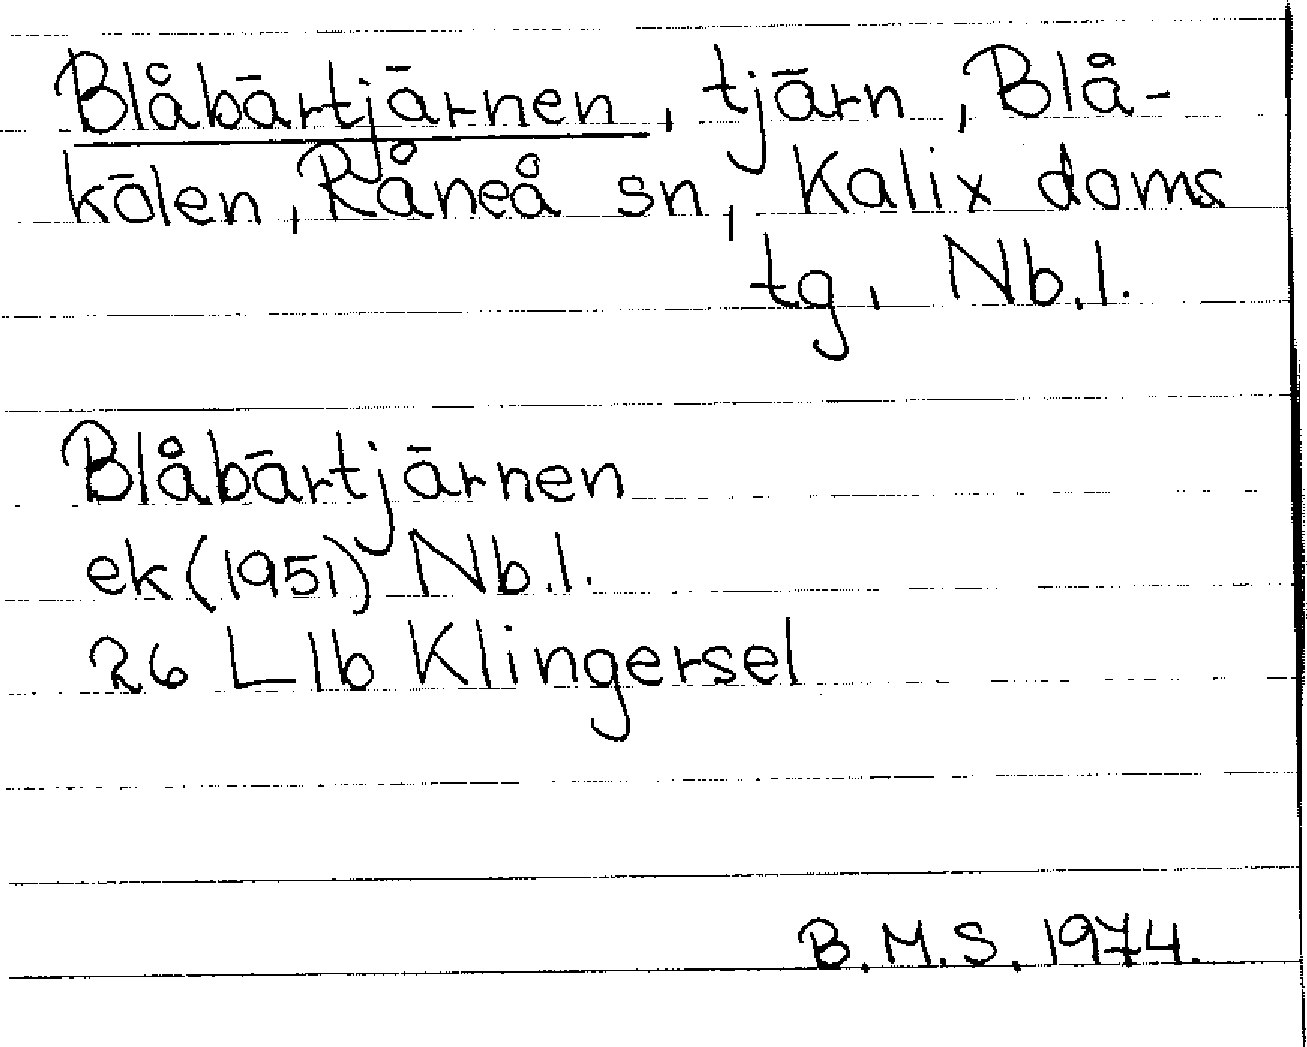 Blåbärtjärnen, tjärn, Blå-
kölen, Råneå sn, Kalix doms
tg, Nb.l.
Blåbärtjärnen
ek (1951) Nb.l.
26 L 1b Klingersel
B.M.S. 1974.